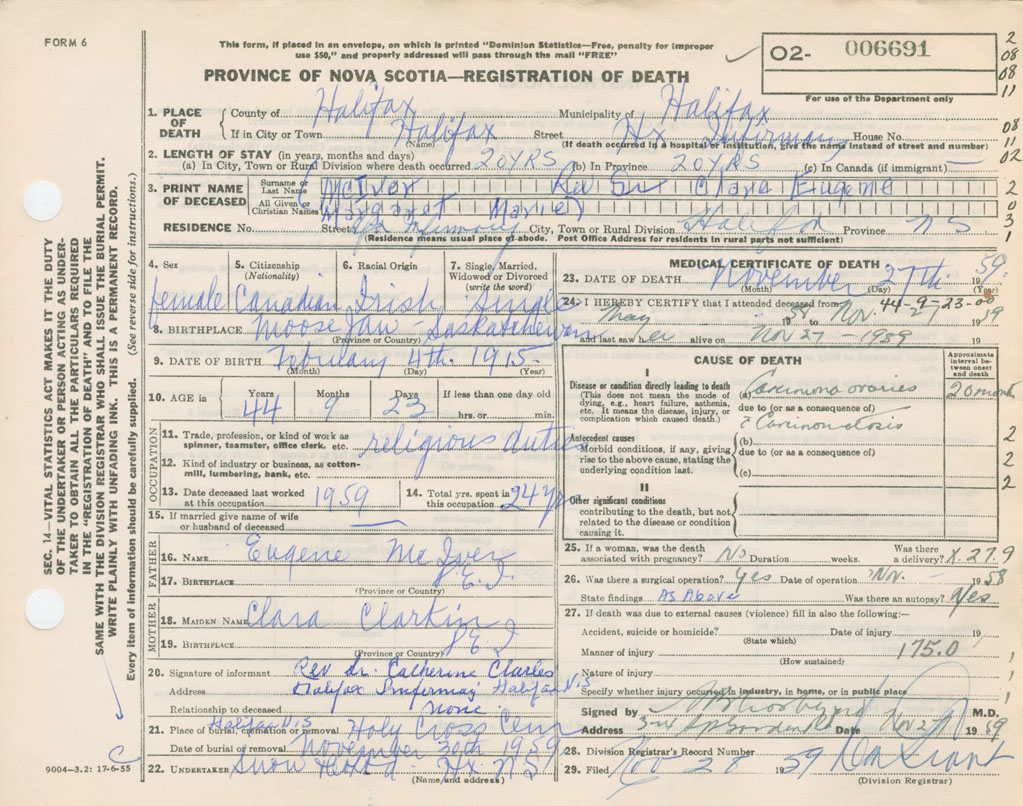 FORM 6
This form, if placed in an envelope, on which is printed "Dominion Statistics—Free, penalty for improper
use $50," and properly addressed will pass through the mail "FREE"
PROVINCE OF NOVA SCOTIA—REGISTRATION OF DEATH
02- 006691
For use of the Department only
2
08
08
11
08
11
02
2
0
3
1
SEC. 14—VITAL STATISTICS ACT MAKES IT THE DUTY
OF THE UNDERTAKER OR PERSON ACTING AS UNDER-
TAKER TO OBTAIN ALL THE PARTICULARS REQUIRED
IN THE "REGISTRATION OF DEATH" AND TO FILE THE
SAME WITH THE DIVISION REGISTRAR WHO SHALL ISSUE THE BURIAL PERMIT.
WRITE PLAINLY WITH UNFADING INK. THIS IS A PERMANENT RECORD.
Every item of information should be carefully supplied. (See reverse side for instructions.)
1. PLACE OF DEATH
County of Halifax Municipality of Halifax
If in City or Town Halifax Street Hx Infirmary House No.
(Name) (If death occurred in a hospital or institution, give the name instead of street and number)
2. LENGTH OF STAY (in years, months and days)
(a) In City, Town or Rural Division where death occurred 20 YRS (b) In Province 20 YRS (c) In Canada (if immigrant) —
3. PRINT NAME OF DECEASED
Surname or Last Name McIver Rev Sr Clara Eugene
All Given or Christian Names Margaret Marie
RESIDENCE No. Street Hx Infirmary City, Town or Rural Division Halifax Province N S
(Residence means usual place of abode. Post Office Address for residents in rural parts not sufficient)
4. Sex female
5. Citizenship (Nationality) Canadian
6. Racial Origin Irish
7. Single, Married, Widowed or Divorced (write the word) Single
8. BIRTHPLACE Moose Jaw - Saskatchewan
(Province or Country)
9. DATE OF BIRTH February 4th. 1915.
(Month) (Day) (Year)
10. AGE in Years 44 Months 9 Days 23 If less than one day old hrs. or min.
OCCUPATION
11. Trade, profession, or kind of work as spinner, teamster, office clerk, etc. religious duties
12. Kind of industry or business, as cotton-mill, lumbering, bank, etc.
13. Date deceased last worked at this occupation 1959
14. Total yrs. spent in this occupation 24 yrs
15. If married give name of wife or husband of deceased —
FATHER
16. NAME Eugene McIver
17. BIRTHPLACE P.E.I.
(Province or Country)
MOTHER
18. MAIDEN NAME Clara Clarkin
19. BIRTHPLACE P E I
(Province or Country)
20. Signature of informant Rev Sr. Catherine Charles
Address Halifax Infirmary Halifax N.S
Relationship to deceased none.
21. Place of burial, cremation or removal Halifax N.S Holy Cross Cem
Date of burial or removal November 30th 1959
22. UNDERTAKER Snow Hx N S
(Name and address)
9004—3.2: 17-6-55
MEDICAL CERTIFICATE OF DEATH
23. DATE OF DEATH November 27th 1959.
(Month) (Day) (Year)
44-9-23-0
24. I HEREBY CERTIFY that I attended deceased from
May 1958 to Nov. 27 1959
and last saw her alive on Nov 27 - 1959 19
CAUSE OF DEATH
Approximate interval between onset and death
I
Disease or condition directly leading to death
(This does not mean the mode of dying, e.g., heart failure, asthenia, etc. It means the disease, injury, or complication which caused death.)
(a) Carcinoma ovaries 20 months
due to (or as a consequence of)
c Carcinomatosis
Antecedent causes
Morbid conditions, if any, giving rise to the above cause, stating the underlying condition last.
(b)
due to (or as a consequence of)
(c)
2
2
2
II
Other significant conditions
contributing to the death, but not related to the disease or condition causing it.
25. If a woman, was the death associated with pregnancy? No Duration weeks. Was there a delivery? X.27.9
26. Was there a surgical operation? Yes Date of operation Nov. - 1958
State findings As Above Was there an autopsy? Yes
27. If death was due to external causes (violence) fill in also the following:—
Accident, suicide or homicide? Date of injury 19
(State which)
Manner of injury 175.0
(How sustained)
Nature of injury
Specify whether injury occurred in industry, in home, or in public place
1
1
1
Signed by M.D.
Address Date Nov 27 1959
28. Division Registrar's Record Number
29. Filed Nov 28 1959
(Division Registrar)